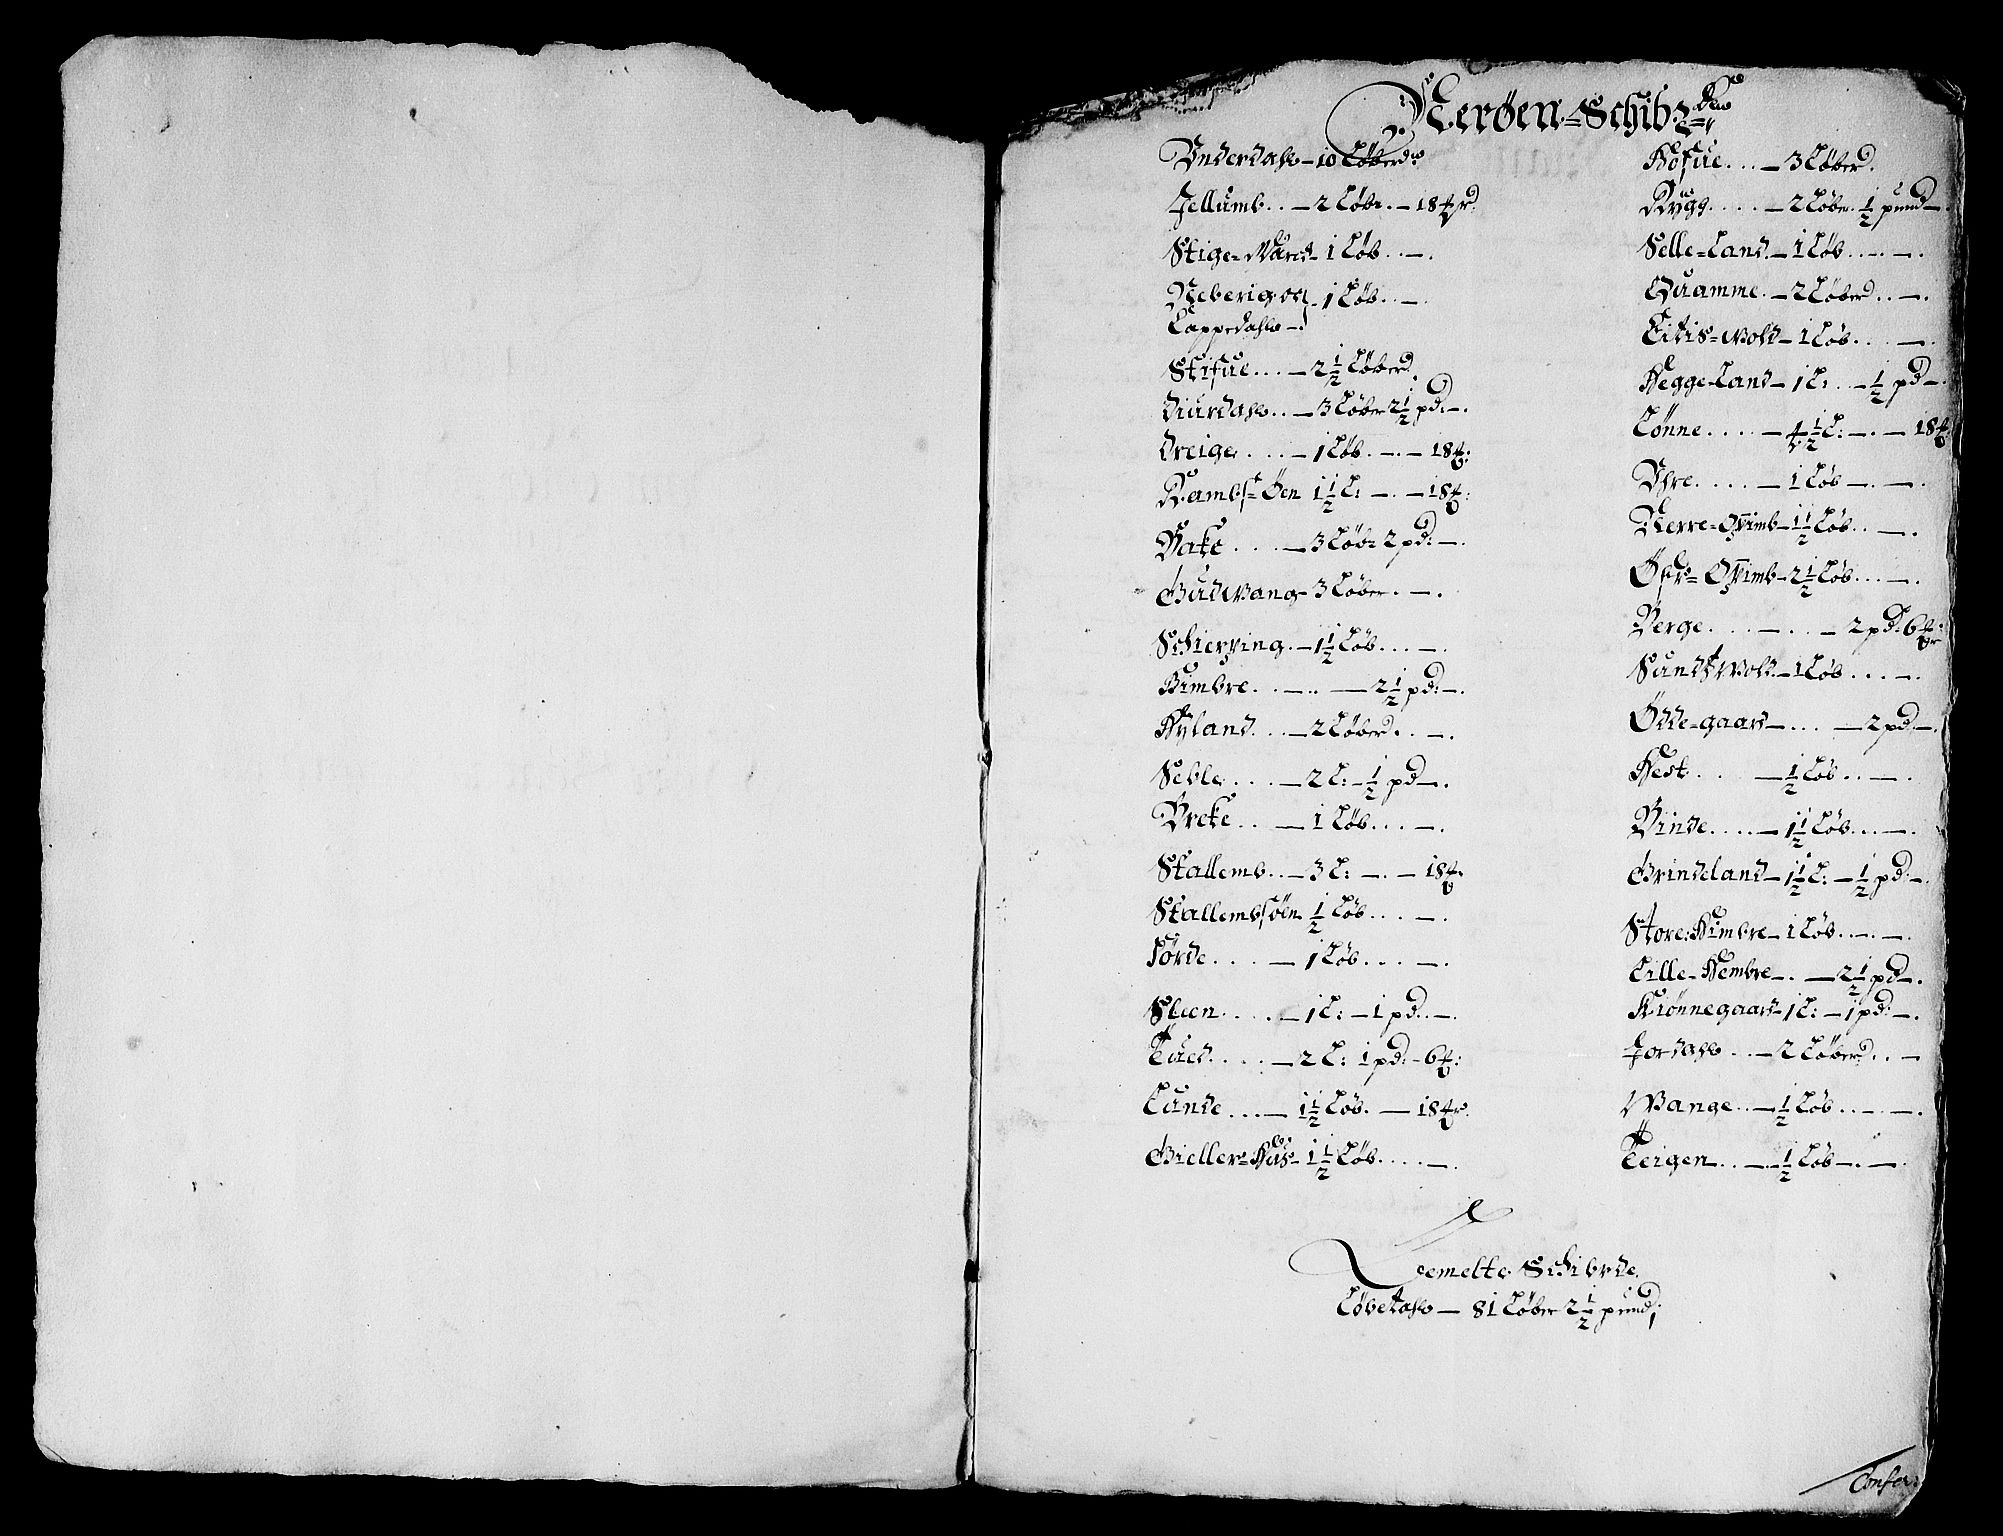 Nerøen-Schibr:
Underdahl - 10 Løber
Jellumb .. - 2 Løb: - 18
Stige-Mard - 1 Løb .. -.
Neberig og - 1 Løb .. -
Lappedahl -
Stifue ... - 2 1/2 Løber.
Diurdahl .. - 3 Løber 2 1/2 pd: -.
Dreige .... - 1 Løb .. - - 18
Rambs-Øen 1 1/2 L: - . - 18
Bake .... - 3 Løb: 2 pd: -.
Gudwang - 3 Løber . -.
Schierping . - 1 1/2 Løb ... -.
Himbre .. -.. - 2 1/2 pd: -.
Hyland .. - 2 Løber .. -.
Seble .... - 2 L: - 1/2 pd -.
Breke .. - 1 Løb ... -.
Stallemb .. - 3 L: - . - 18
Stallembsøen 1/2 Løb .... -.
Førde .... - 1 Løb .... -.
Sleen ..... - 1 L: - 1 pd .. -
Tued .... - 2 L: 1 pd: - 6
Lunde ... - 1 1/2 Løb. - 18
Gieller-Hus - 1 1/2 Løb .... -.
Hofue ... - 3 Løber.
Rygg .... - 2 Løber 1/2 pund -.
Selle-Land - 1 Løb .... -.
Quamme . - 2 Løber .. -.
Eitis-wold - 1 Løb .... -.
Hegge-Land - 1 L: .. - 1/2 pd -.
Lønne .... - 4 1/2 L: - . - 18
Yhre .... - 1 Løb - . -.
Nerre-Opimb - 1 1/2 Løb .. -.
Øfr-Opimb - 2 1/2 Løb ... -.
Berge .... - .. - 2 pd: 6
Sundtwold - 1 Løb .... -.
Ødde-gaard - ... - 2 pd: -.
Hest ... - 1/2 Løb .. -.
Vinde .... - 1 1/2 Løb ... -.
Grindeland - 1 1/2 L: - 1/2 pd: -.
Store: Himbre - 1 Løb .... -.
Lille-Hembre - . - 2 1/2 pd -.
Kiønnegaard - 1 L: - 1 pd: -.
Jordahl .. - 2 Løber .. -
Wange .. - 1/2 Løb .... -.
Teigen .. - 1/2 Løb - . -.
Bemelte Schibrde
Løbetahl - 81 Løber 2 1/2 pund:
Confer: